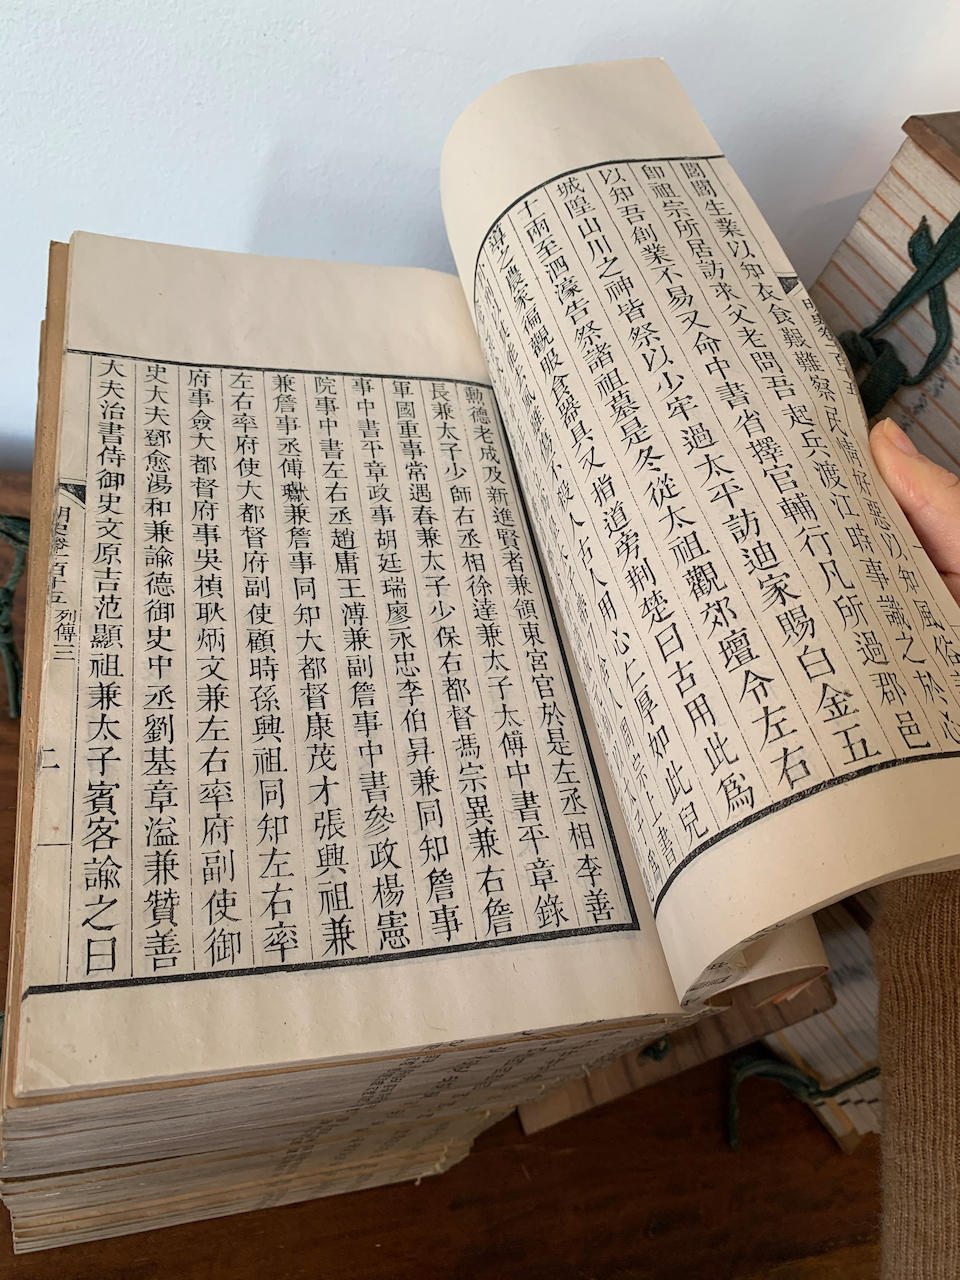 閭閻生業以知衣食艱難察民情好惡以知風俗
卽祖宗所居訪求父老問吾起兵渡江時事識之於心
以知吾創業不易又命中書省擇官輔行凡所過郡邑
城隍山川之神皆祭以少牢過太平訪迪家賜白金五
十兩至泗濠告祭諸祖墓是冬從太祖觀郊壇令左右
導之農家徧觀服食器具又指道旁荆楚曰古用此爲
刑以其能去風雖傷不殺人古人用心仁厚如此兒
勳德老成及新進賢者兼領東宮官於是左丞相李善
長兼太子少師右丞相徐達兼太子太傅中書平章錄
軍國重事常遇春兼太子少保右都督馮宗異兼右詹
事中書平章政事胡廷瑞廖永忠李伯昇兼同知詹事
院事中書左右丞趙庸王溥兼副詹事中書參政楊憲
兼詹事丞傅瓛兼詹事同知大都督康茂才張興祖兼
左右率府使大都督府副使顧時孫興祖同知左右率
府事僉大都督府事吳楨耿炳文兼左右率府副使御
史大夫鄧愈湯和兼諭德御史中丞劉基章溢兼贊善
大夫治書侍御史文原吉范顯祖兼太子賓客諭之曰
明史卷一百十五 列傳三
二